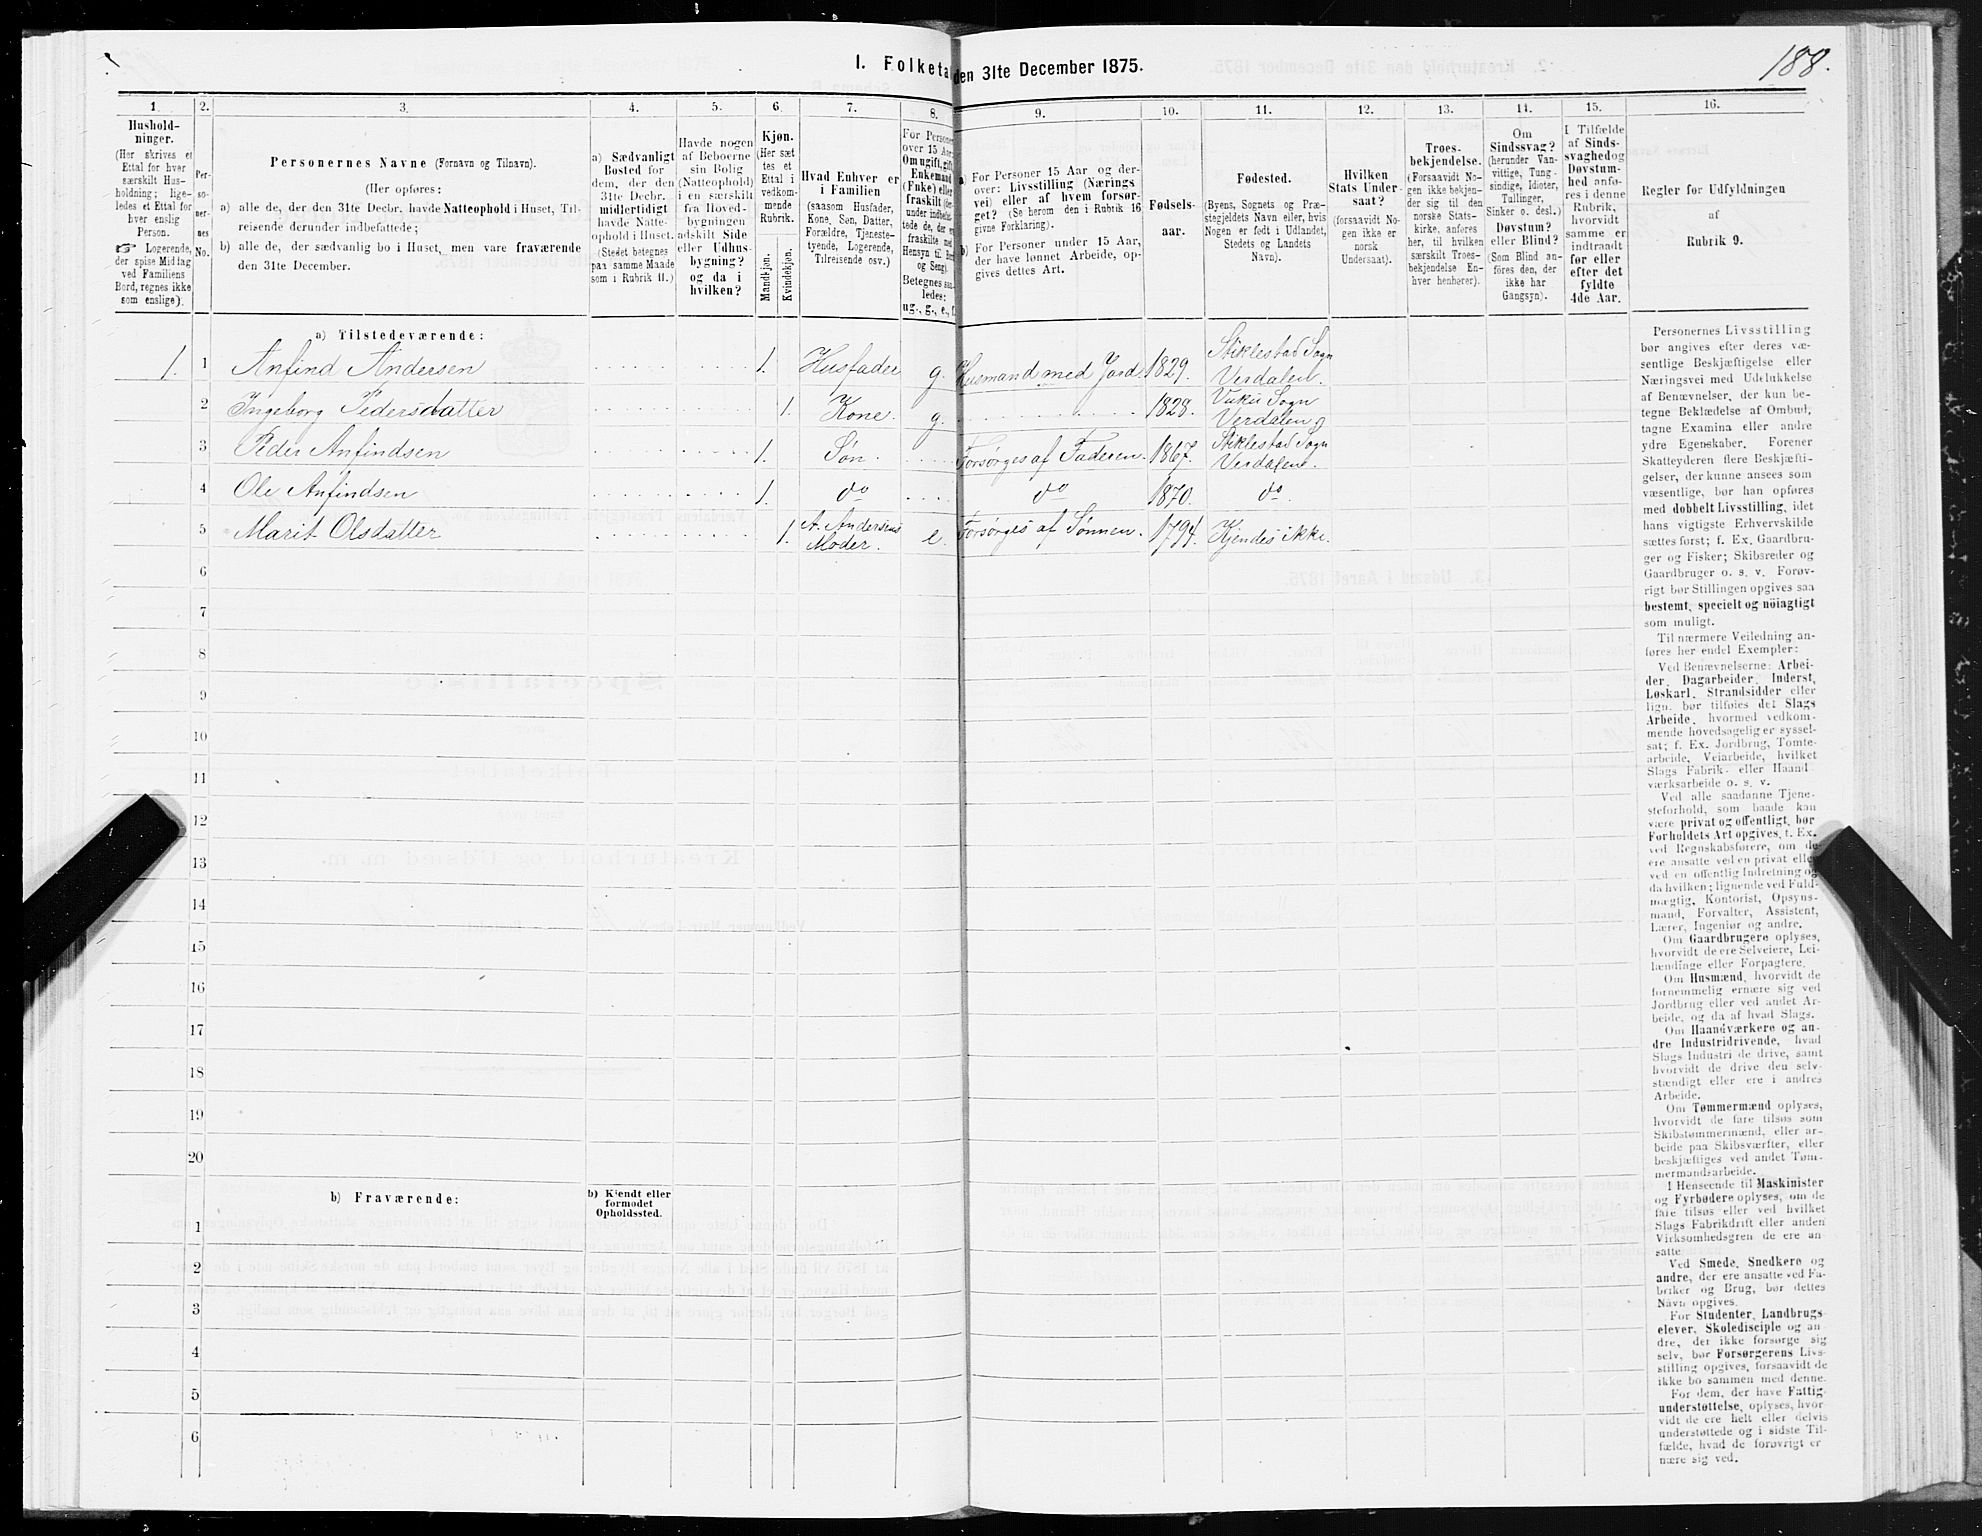 188.
1. Folketa den 31te December 1875.
1. 2. 3. 4. 5. 6. 7. 8. 9. 10. 11. 12. 13. 14. 15. 16.
Hushold-
ninger.
(Her skrives et
Ettal for hver
særskilt Hus-
holdning; lige-
ledes et Ettal for
hver enslig
Person.
☞ Logerende,
der spise Middag
ved Familiens
Bord, regnes ikke
som enslige).
Per-
so-
ner-
nes
No.
Personernes Navne (Fornavn og Tilnavn).
(Her opføres:
a) alle de, der den 31te Decbr. havde Natteophold i Huset, Til-
reisende derunder indbefattede;
b) alle de, der sædvanlig bo i Huset, men vare fraværende
den 31te December.
a) Sædvanligt
Bosted for
dem, der den
31te Decbr.
midlertidigt
havde Natte-
ophold i Huset.
(Stedet betegnes
paa samme Maade
som i Rubrik 11.)
Havde nogen
af Beboerne
sin Bolig
(Natteophold)
i en særskilt
fra Hoved-
bygningen
adskilt Side
eller Udhus-
bygning?
og da i
hvilken?
Kjøn.
(Her sæt
tes et
Ettal i
vedkom-
mende
Rubrik.
Mandkjøn.
Kvindekjøn.
Hvad Enhver er
i Familien
(saasom Husfader,
Kone, Søn, Datter,
Forældre, Tjeneste-
tyende, Logerende,
Tilreisende osv.)
For Personer
over 15 Aar:
Om ugift, gift,
Enkemand
(Enke) eller
fraskilt (der-
under indbefat-
tede de, der ere
fraskilte med
Hensyn til Bord
og Seng).
Betegnes saa-
ledes:
ug., g., e., f.
a) For Personer 15 Aar og der-
over: Livsstilling (Nærings
vei) eller af hvem forsør-
get? (Se herom den i Rubrik 16
givne Forklaring).
b) For Personer under 15 Aar,
der have lønnet Arbeide, op-
gives dettes Art.
Fødsels-
aar.
Fødested.
(Byens, Sognets og Præ-
stegjeldets Navn eller, hvis
Nogen er født i Udlandet,
Stedets og Landets
Navn).
Hvilken
Stats Under-
saat?
(forsaavidt No-
gen ikke er
norsk
Undersaat).
Troes-
bekjendelse.
(Forsaavidt No-
gen ikke bekjen-
der sig til den
norske Stats-
kirke, anføres
her, til hvilken
særskilt Troes-
bekjendelse En-
hver henhører).
Om
Sindssvag?
(herunder Van-
vittige, Tung-
sindige, Idioter,
Tullinger,
Sinker o. desl.)
Døvstum?
eller Blind?
(Som Blind an-
føres den, der
ikke har
Gangsyn).
I Tilfælde
af Sinds-
svaghed og
Døvstum-
hed anfø-
res i denne
Rubrik,
hvorvidt
samme er
indtraadt
før eller
efter det
fyldte
4de Aar.
Regler for Udfyldningen
af
Rubrik 9.
a) Tilstedeværende:
1. 1 Anfind Andersen 1. Husfader g. Husmand med Jord. 1829. Stiklestad Sogn Verdalen.
2 Ingeborg Pedersdatter 1. Kone. g. 1828. Vuku Sogn Verdalen
3 Peder Anfindsen 1. Søn. Forsørges af Faderen. 1867. Stiklestad Sogn Verdalen.
4 Ole Anfindsen 1. do do 1870. do.
5 Marit Olsdatter 1. A. Andersens Moder. e. Forsørges af Sønnen. 1794. Kjendes ikke.
6
7
8
9
10
11
12
13
14
15
16
17
18
19
20
b) Fraværende:
b) Kjendt eller
formodet
Opholdssted.
1
2
3
4
5
6
Personernes Livsstilling
bør angives efter deres væ-
sentlige Beskjæftigelse eller
Næringsvei med Udelukkelse
af Benævnelser, der kun be-
tegne Beklædelse af Ombud,
tagne Examina eller andre
ydre Egenskaber. Forener
Skatteyderen flere Beskjæfti-
gelser, der kunne ansees som
væsentlige, bør han opføres
med dobbelt Livsstilling, idet
hans vigtigste Erhvervskilde
sættes først; f. Ex. Gaardbru-
ger og Fisker; Skibsreder og
Gaardbruger o. s. v. Forøv-
rigt bør Stillingen opgives saa
bestemt, specielt og nöiagtigt
som muligt.
Til nærmere Veiledning an-
føres her endel Exempler:
Ved Benævnelserne: Arbei-
der, Dagarbeider, Inderst,
Løskarl, Strandsidder eller
lign. bør tilføies det Slags
Arbeide, hvormed vedkom-
mende hovedsagelig er syssel-
sat; f. Ex. Jordbrug, Tomte-
arbeide, Veiarbeide, hvilket
Slags Fabrik- eller Haand
værksarbeide o. s. v.
Ved alle saadanne Tjene-
steforhold, som baade kan
være privat og offentligt, bør
Forholdets Art opgives, t. Ex.
ved Regnskabsførere, om de
ere ansatte ved en privat eller
ved en offentlig Indretning og
da hvilken; lignende ved Fuld-
mægtig, Kontorist, Opsyns-
mand, Forvalter, Assistent,
Lærer, Ingeniør og andre.
Om Gaardbrugere oplyses,
hvorvidt de ere Selveiere, Lei-
lændinge eller Forpagtere.
Om Husmænd, hvorvidt de
fornemmelig ernære sig ved
Jordbrug eller ved andet Ar-
beide, og da af hvad Slags.
Om Haandværkere og an-
dre Industridrivende, hvad
Slags Industri de drive, samt
hvorvidt de drive den selv-
stændigt eller ere i andres
Arbeide.
Om Tømmermænd oplyses,
hvorvidt de fare tilsøs som
Skibstømmermænd, eller ar-
beide paa Skibsværfter, eller
beskjæftiges ved andet Tøm-
mermandsarbeide.
I Henseende til Maskinister
og Fyrbødere oplyses, om de
fare tilsøs eller ved hvilket
Slags Fabrikdrift eller anden
Virksomhedsgren de ere an-
satte
Ved Smede, Snedkere og
andre, der ere ansatte ved Fa-
briker og Brug, bør dettes
Navn opgives.
For Studenter, Landbrugs
elever, Skoledisciple og an-
dre, der ikke forsørge sig
selv, bør Forsørgerens Livs-
stilling opgives, forsaavidt de
ikke bo sammen med denne.
For dem, der have Fattig-
understøttelse, oplyses, hvor-
vidt de ere helt eller delvis
understøttede og i sidste Til-
fælde, hvad de forøvrigt er
nære sig ved.